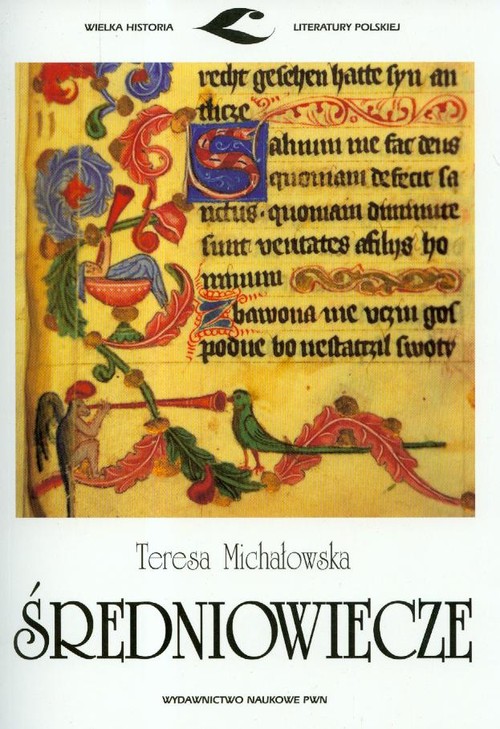 WIELKA HISTORIA LITERATURY POLSKIEJ
recht gesehen hatte syn an
tlicze
Saluum me fac deus
quoniam defecit sa
nctus · quoniam diminute
sunt veritates afilys ho
minum
Zbawona me vczin gos
podne bo nestatczil swoty
Teresa Michałowska
ŚREDNIOWIECZE
WYDAWNICTWO NAUKOWE PWN